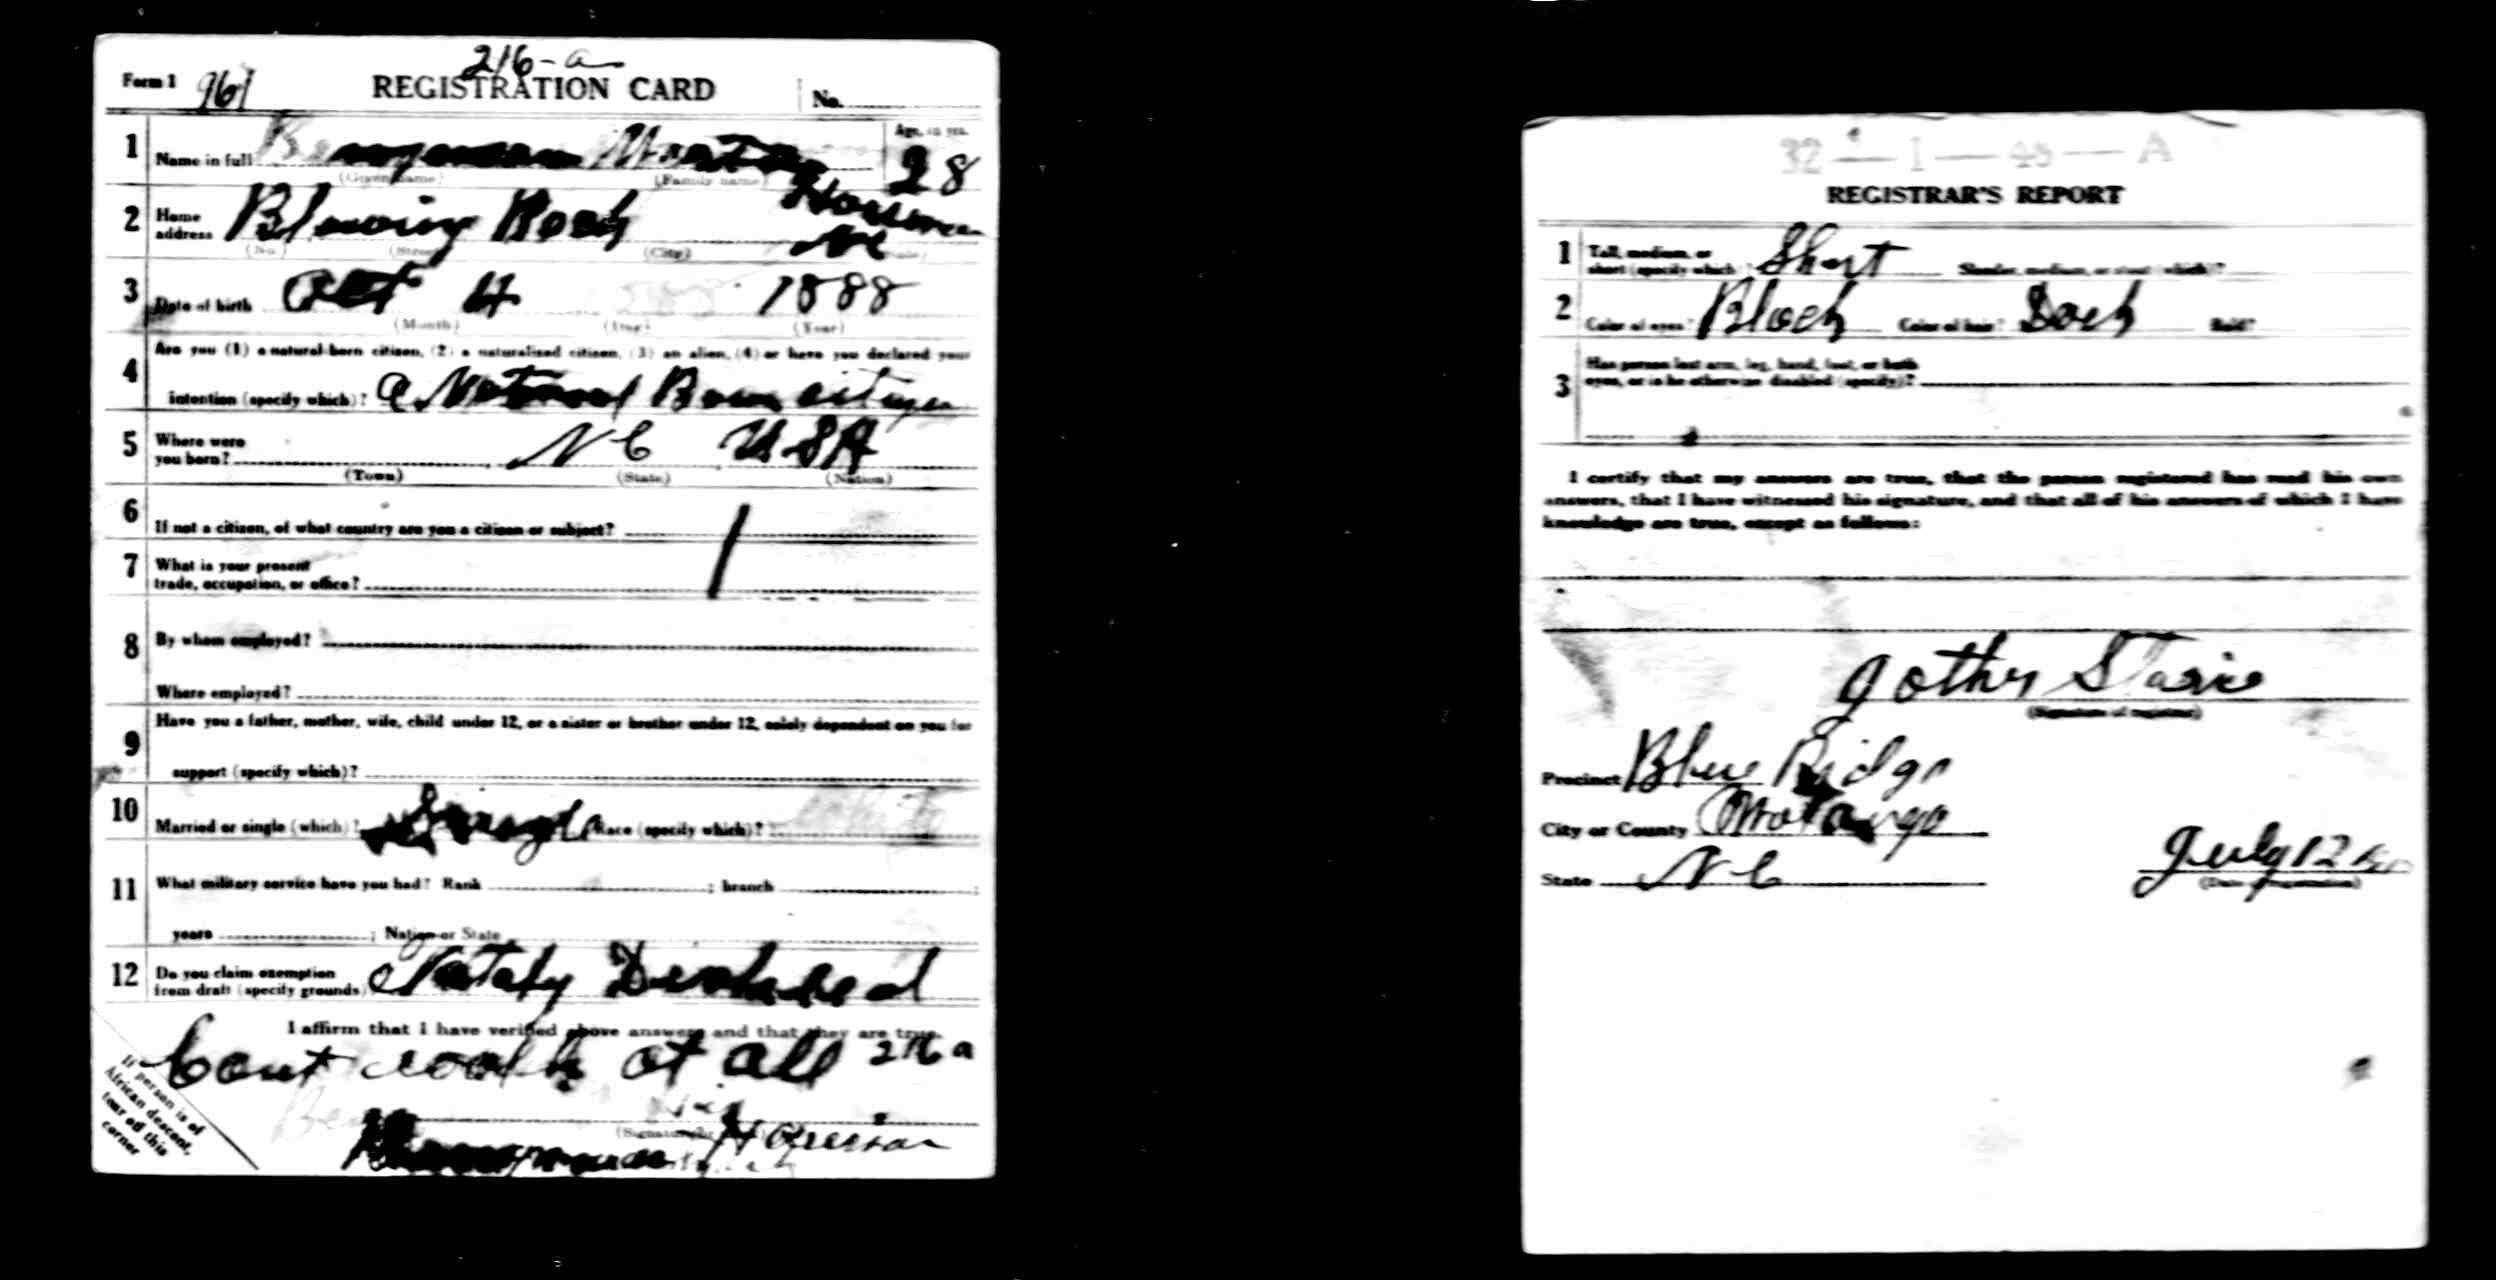 216-a
Form 1 961 REGISTRATION CARD No.
1 Name in full Age, in yrs.
28
(Given name) (Family name)
2 Home address Blowing Rock NC
(No.) (Street) (City)
3 Date of birth Oct 4 1888
(Month) (Day) (Year)
4 Are you (1) a natural-born citizen, (2) a naturalized citizen, (3) an alien, (4) or have you declared your
intention (specify which)? a Natural Born citizen
5 Where were
you born? N C U S A
(Town) (State) (Nation)
6 If not a citizen, of what country are you a citizen or subject?
7 What is your present
trade, occupation, or office?
8 By whom employed?
Where employed?
9 Have you a father, mother, wife, child under 12, or a sister or brother under 12, solely dependent on you for
support (specify which)?
10 Married or single (which)? Race (specify which)?
11 What military service have you had? Rank ; branch ;
years ; Nation or State
12 Do you claim exemption
from draft (specify grounds)
I affirm that I have verified above answers and that they are true.
Cant walk at all 216 a
If person is of
African descent,
tear off this
corner
32-1-45-A
REGISTRAR'S REPORT
1 Tall, medium, or
short (specify which)? Short Slender, medium, or stout (which)?
2 Color of eyes? Black Color of hair? Dark Bald?
3 Has person lost arm, leg, hand, foot, or both
eyes, or is he otherwise disabled (specify)?
I certify that my answers are true, that the person registered has read his own
answers, that I have witnessed his signature, and that all of his answers of which I have
knowledge are true, except as follows:
(Signature of registrar)
Precinct Blue Ridge
City or County
State N C July 12
(Date of registration)